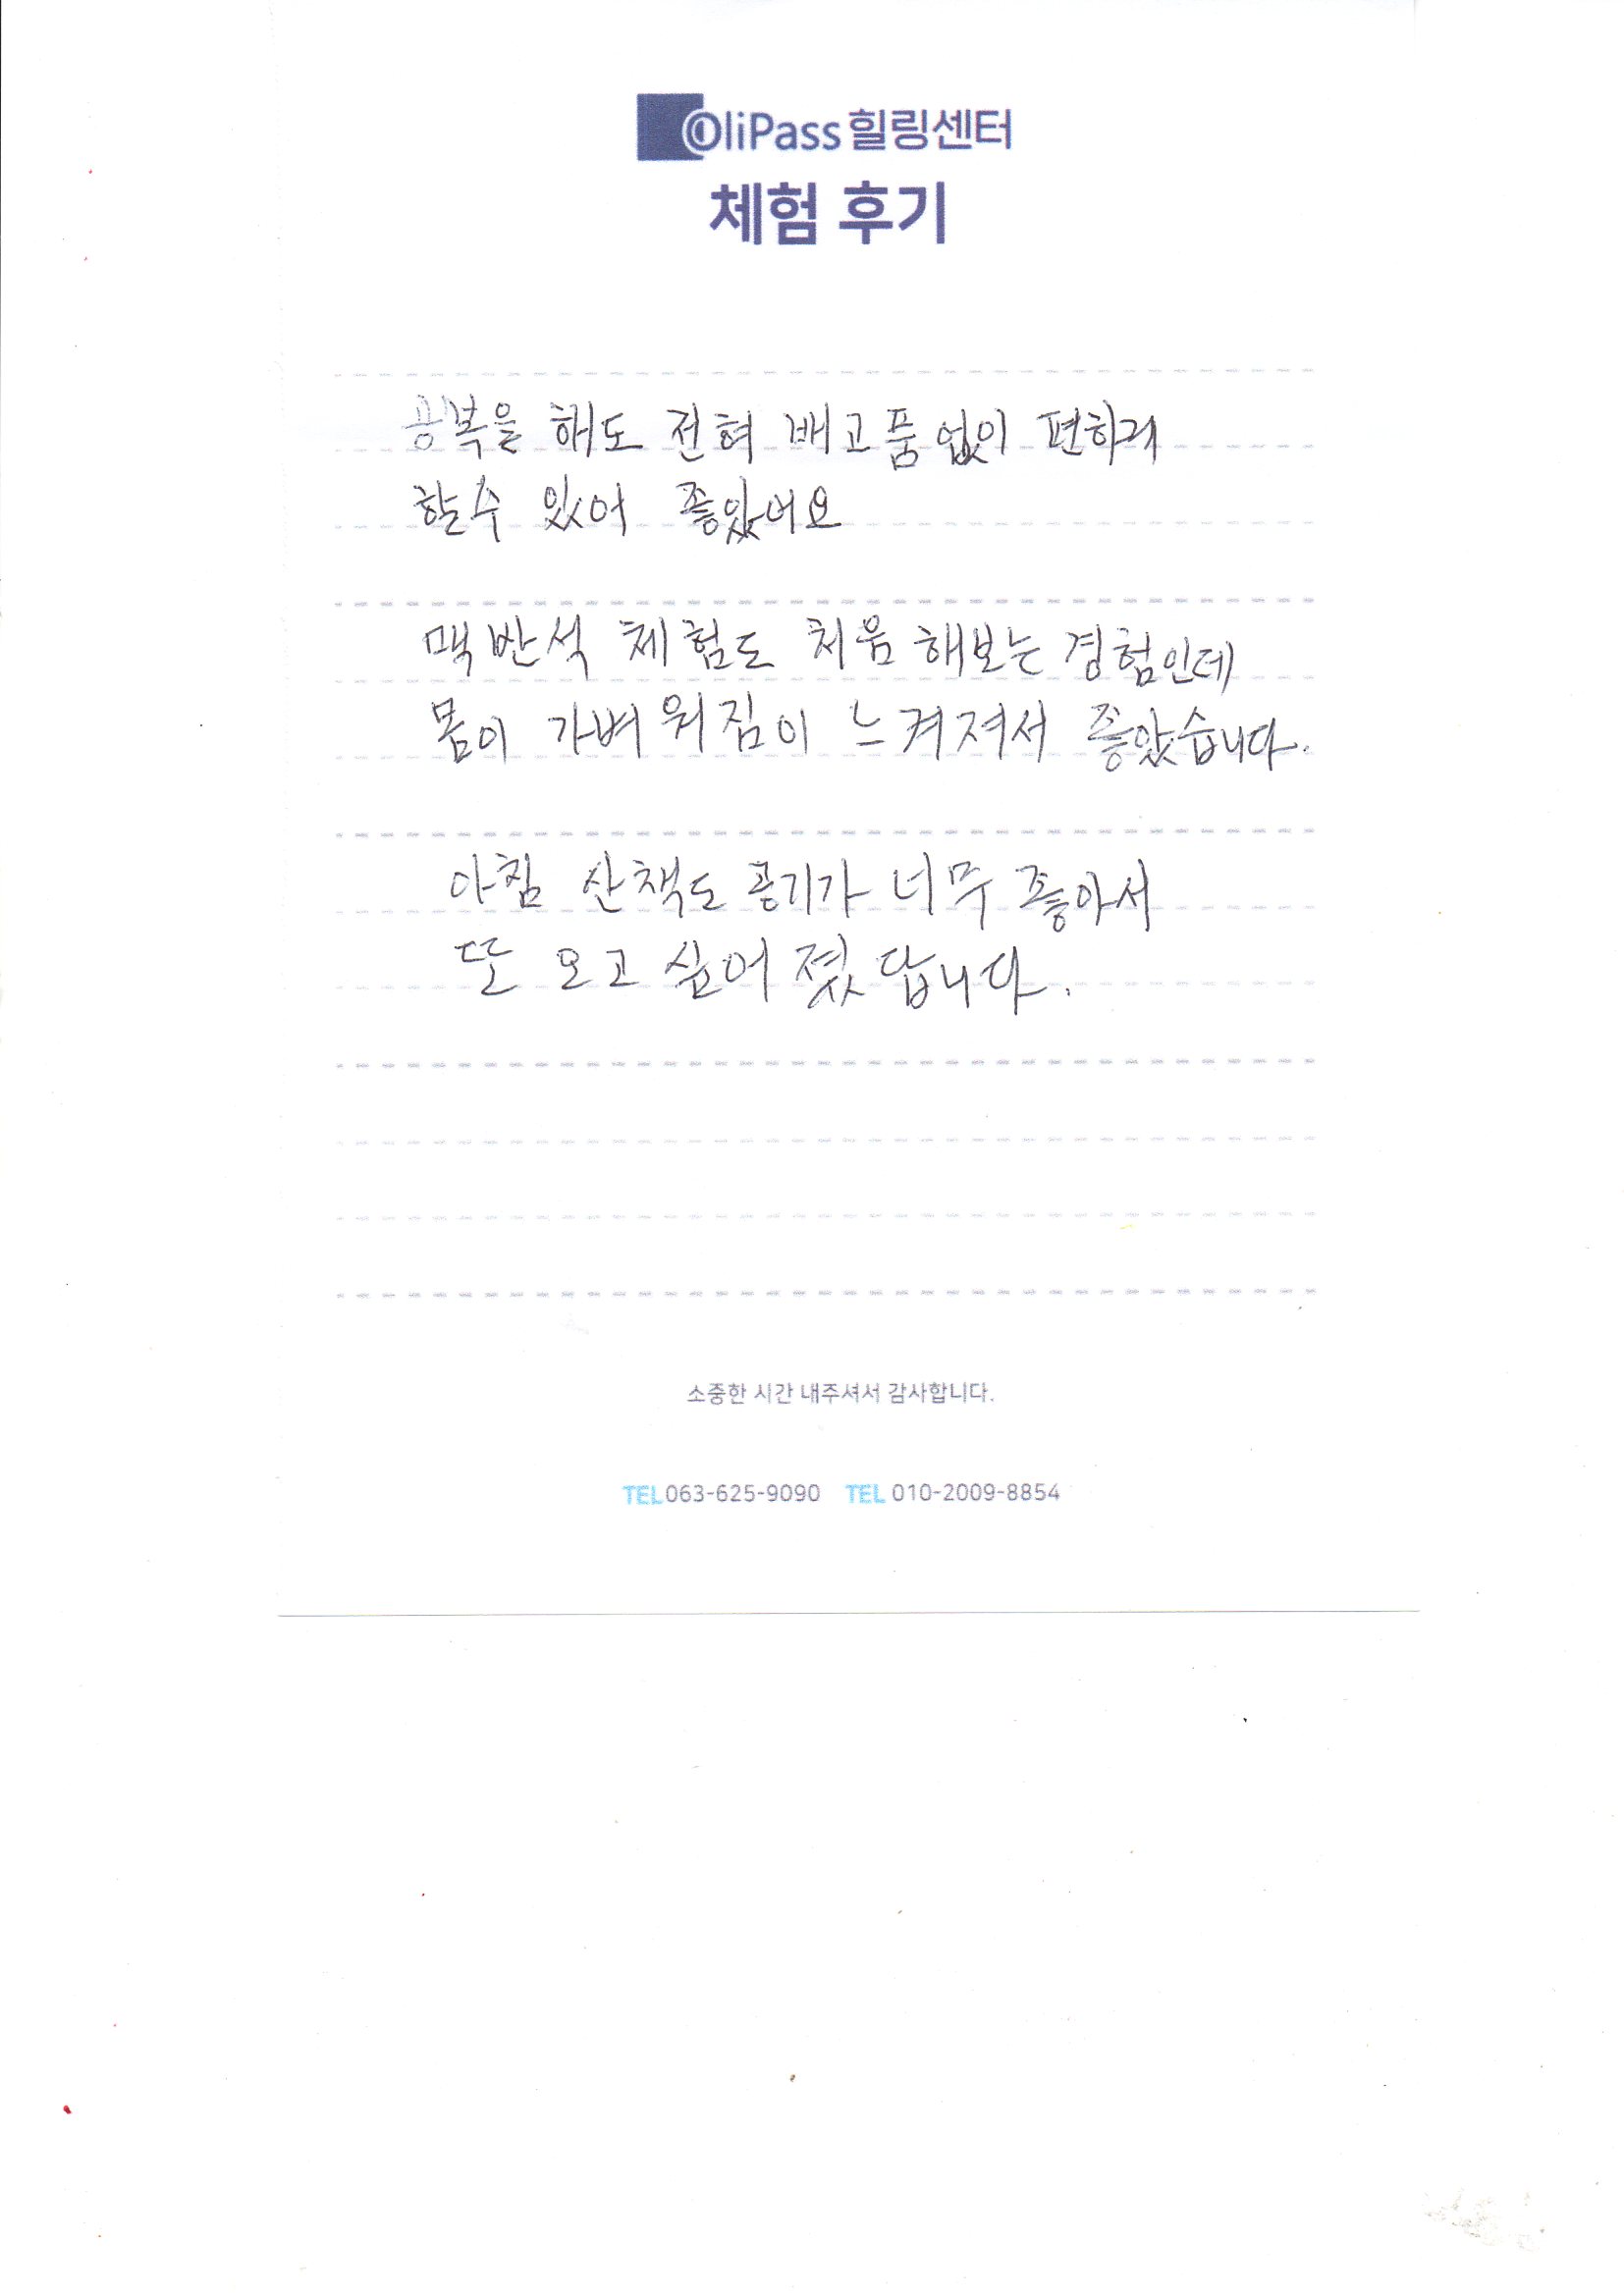 OliPass 힐링센터
체험 후기
공복을 해도 전혀 배고품없이 편하게
할수 있어 좋았어요
맥반석 체험도 처음 해보는 경험인데
몸이 가벼워짐이 느켜져서 좋았습니다.
아침 산책도 공기가 너무 좋아서
또 오고 싶어 졌답니다.
소중한 시간 내주셔서 감사합니다.
TEL 063-625-9090 TEL 010-2009-8854